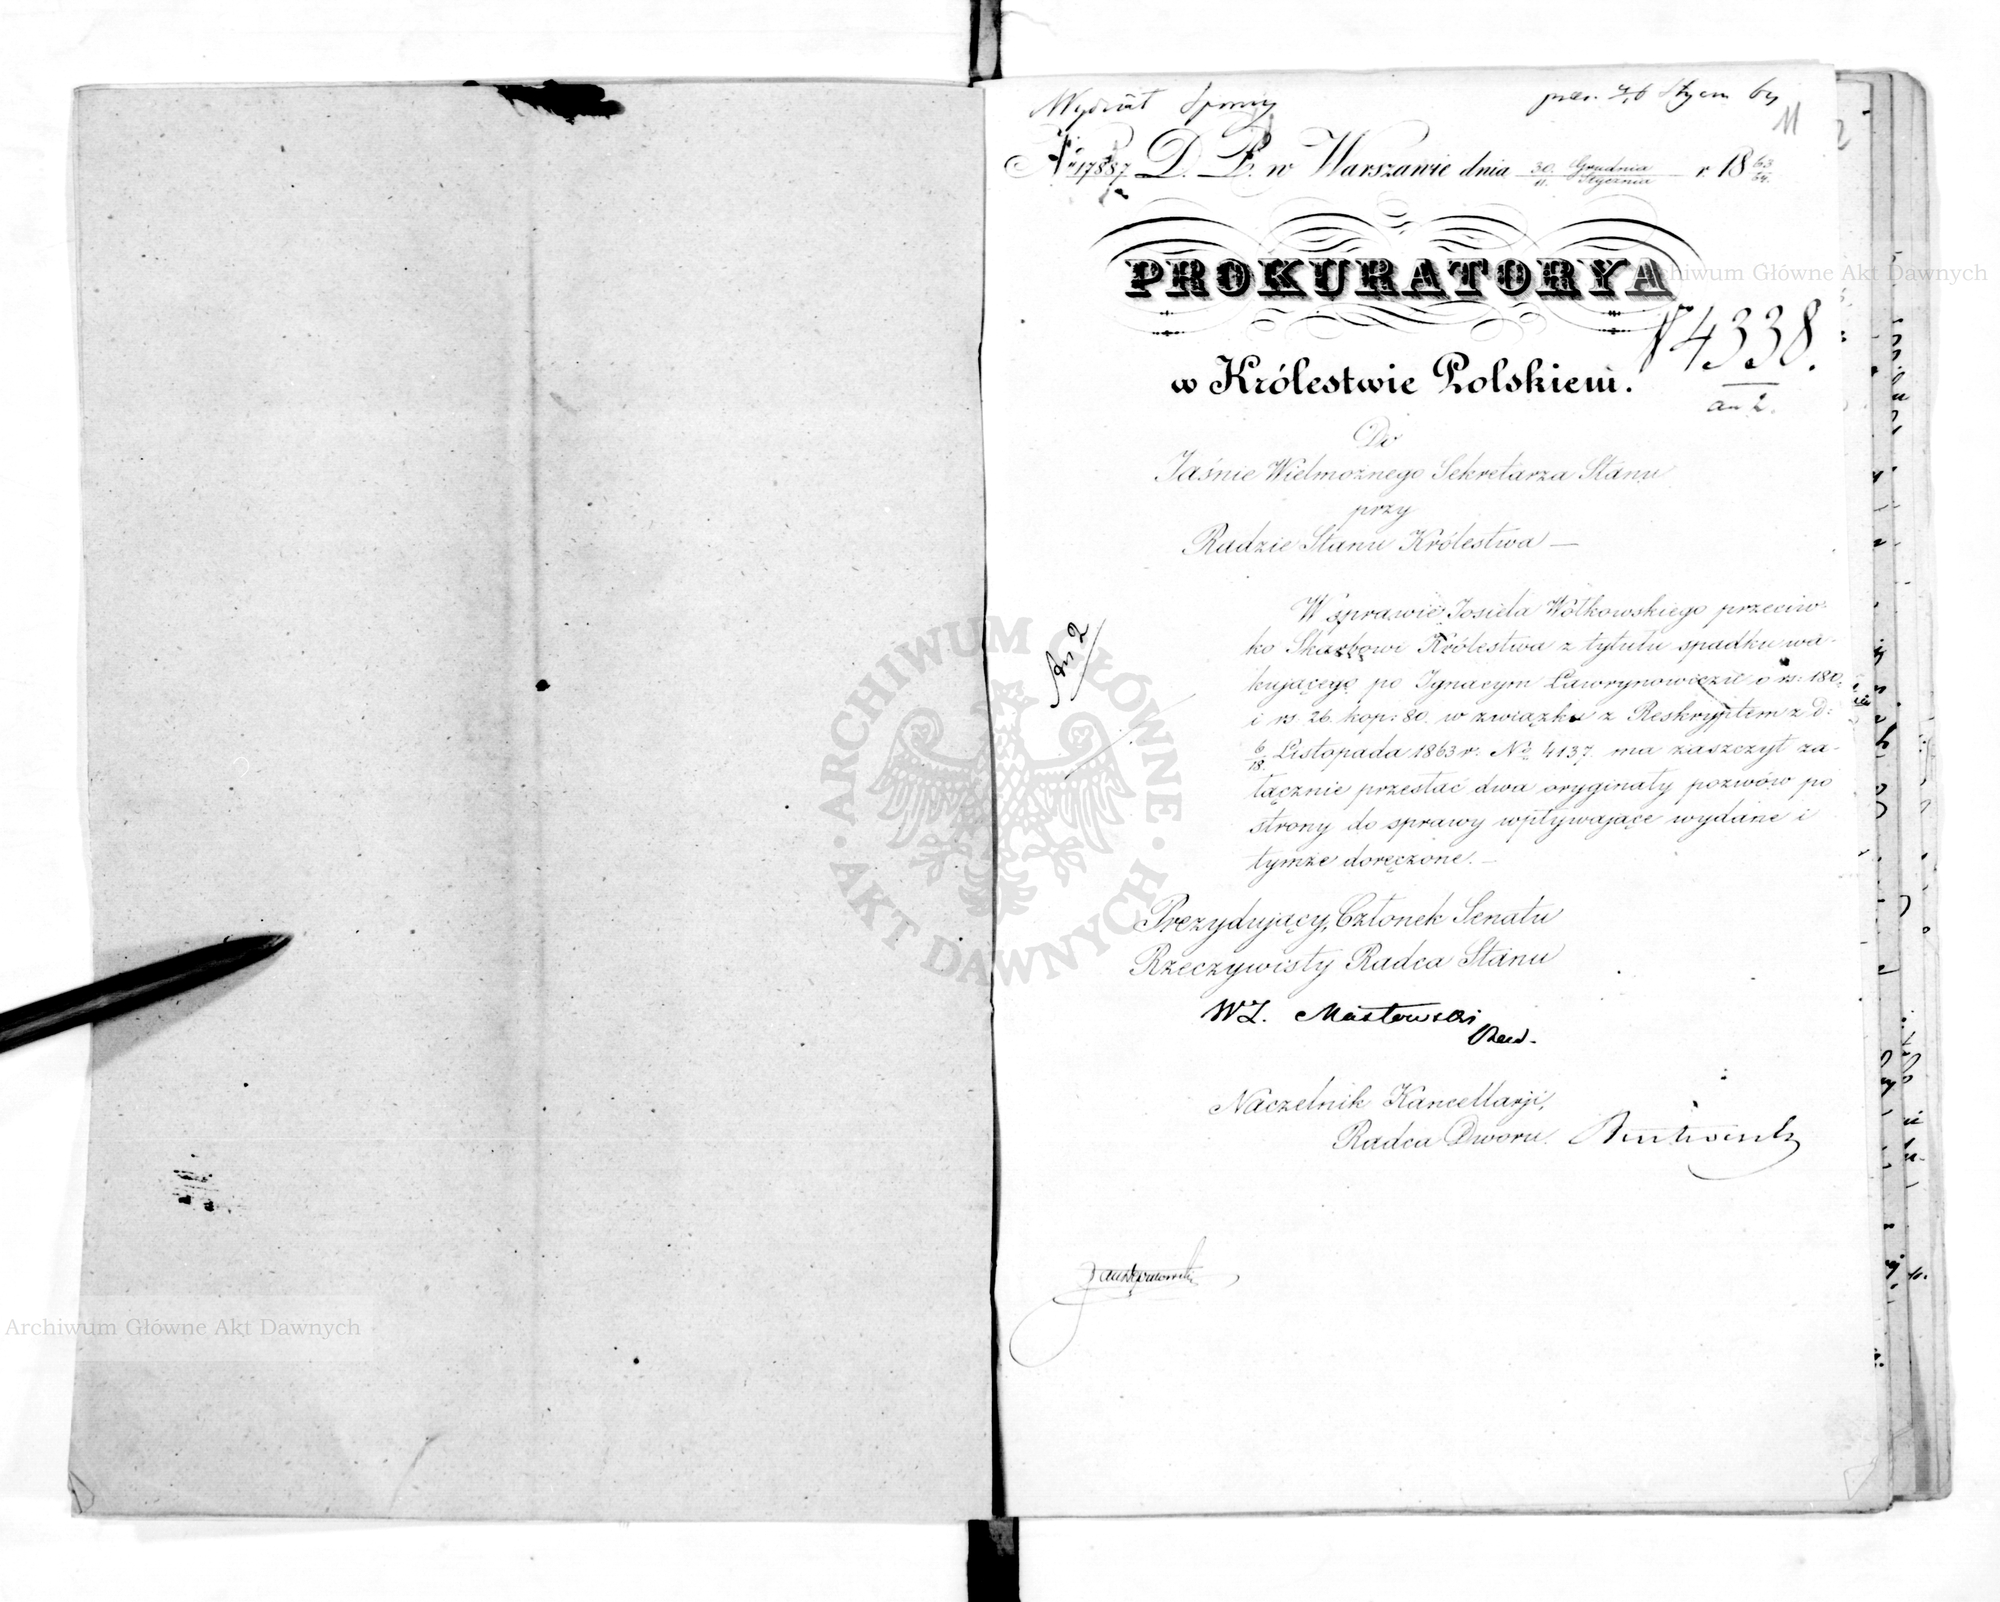 Wydział Sporny
prez. 4/6 Stycz 64
11
N 17887 D. P. w Warszawie dnia 30/11 Grudnia/Stycznia r 18 63/64.
PROKURATORYA
N 4338.
an 2.
w Królestwie Polskiem.
Do
Jaśnie Wielmożnego Sekretarza Stanu
przy
Radzie Stanu Królestwa —
an 2
W sprawie Josiela Wółkowskiego przeciw-
ko Skarbowi Królestwa z tytułu spadku wa-
kującego po Ignacym Ławrynowiczu o rs: 180.
i rs 26. kop: 80. w związku z Reskryptem z D:
6/18. Listopada 1863 r. No 4137. ma zaszczyt za-
łącznie przesłać dwa oryginały pozwów po
strony do sprawy wpływające wydane i
tymże doręczone. —
Prezydujący, Członek Senatu
Rzeczywisty Radca Stanu
WZ. Masłowski
Naczelnik Kancellarji,
Radca Dworu.
Archiwum Główne Akt Dawnych
Archiwum Główne Akt Dawnych
ARCHIWUM GŁÓWNE AKT DAWNYCH